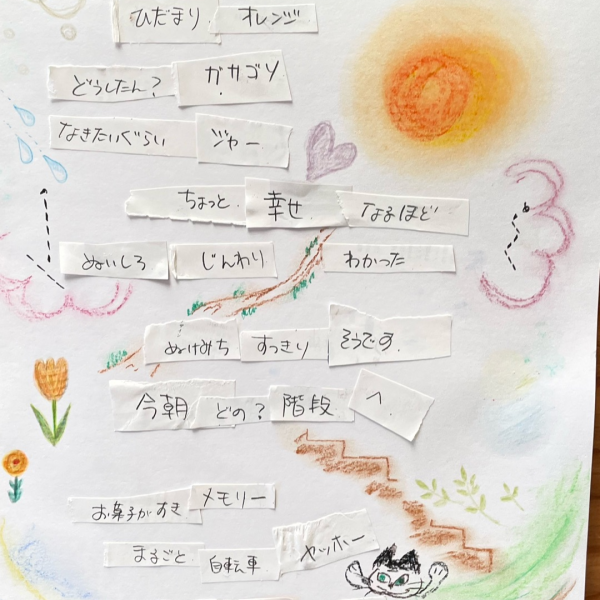 ひだまり オレンジ
どうしたん? ガサゴソ
なきたいぐらい ジャー
ちょっと. 幸せ. なるほど
ぬいしろ じんわり わかった
ぬけみち すっきり そうです.
今朝 どの? 階段 へ.
お菓子がすき メモリー
まるごと 自転車 ヤッホー